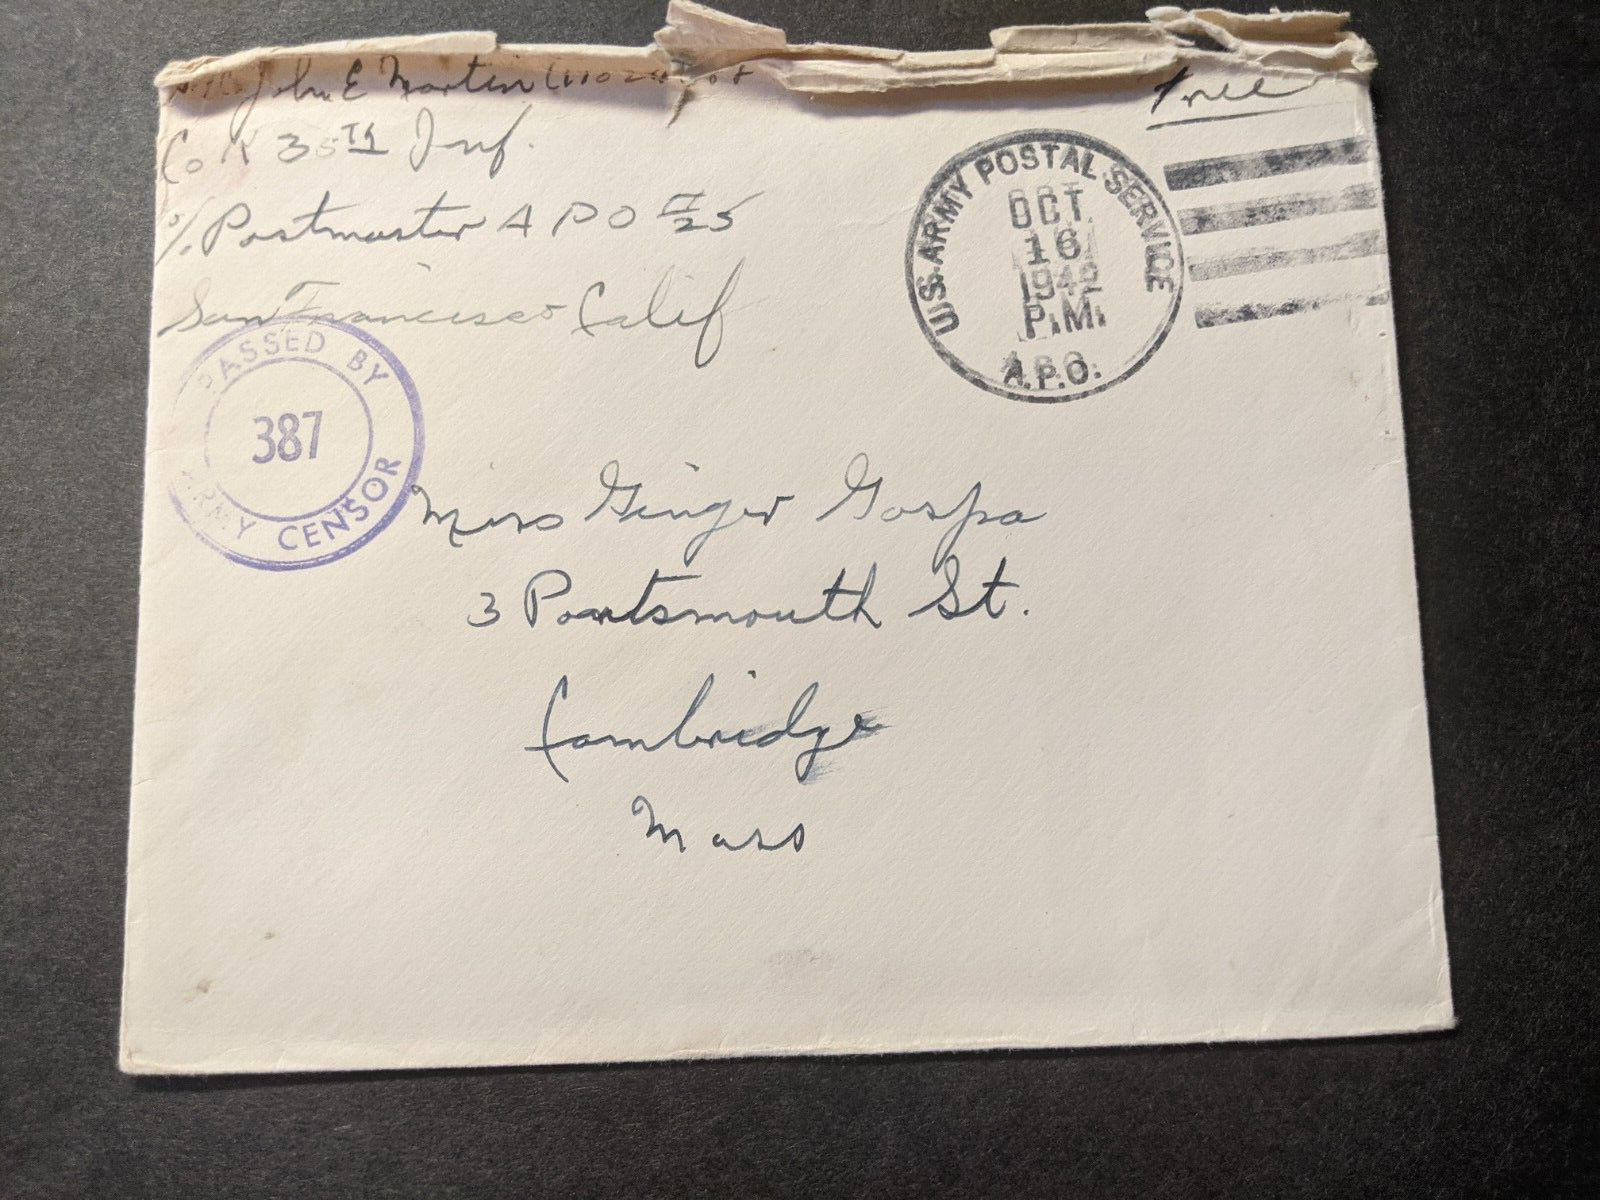 John E Martin
Co K 35TH Inf.
% Postmaster A P O # 25
San Francisco Calif
Free
U.S. ARMY POSTAL SERVICE
OCT
16
1942
P.M.
A.P.O.
PASSED BY
387
ARMY CENSOR
Miss Ginger Gaspa
3 Portsmouth St.
Cambridge
Mass